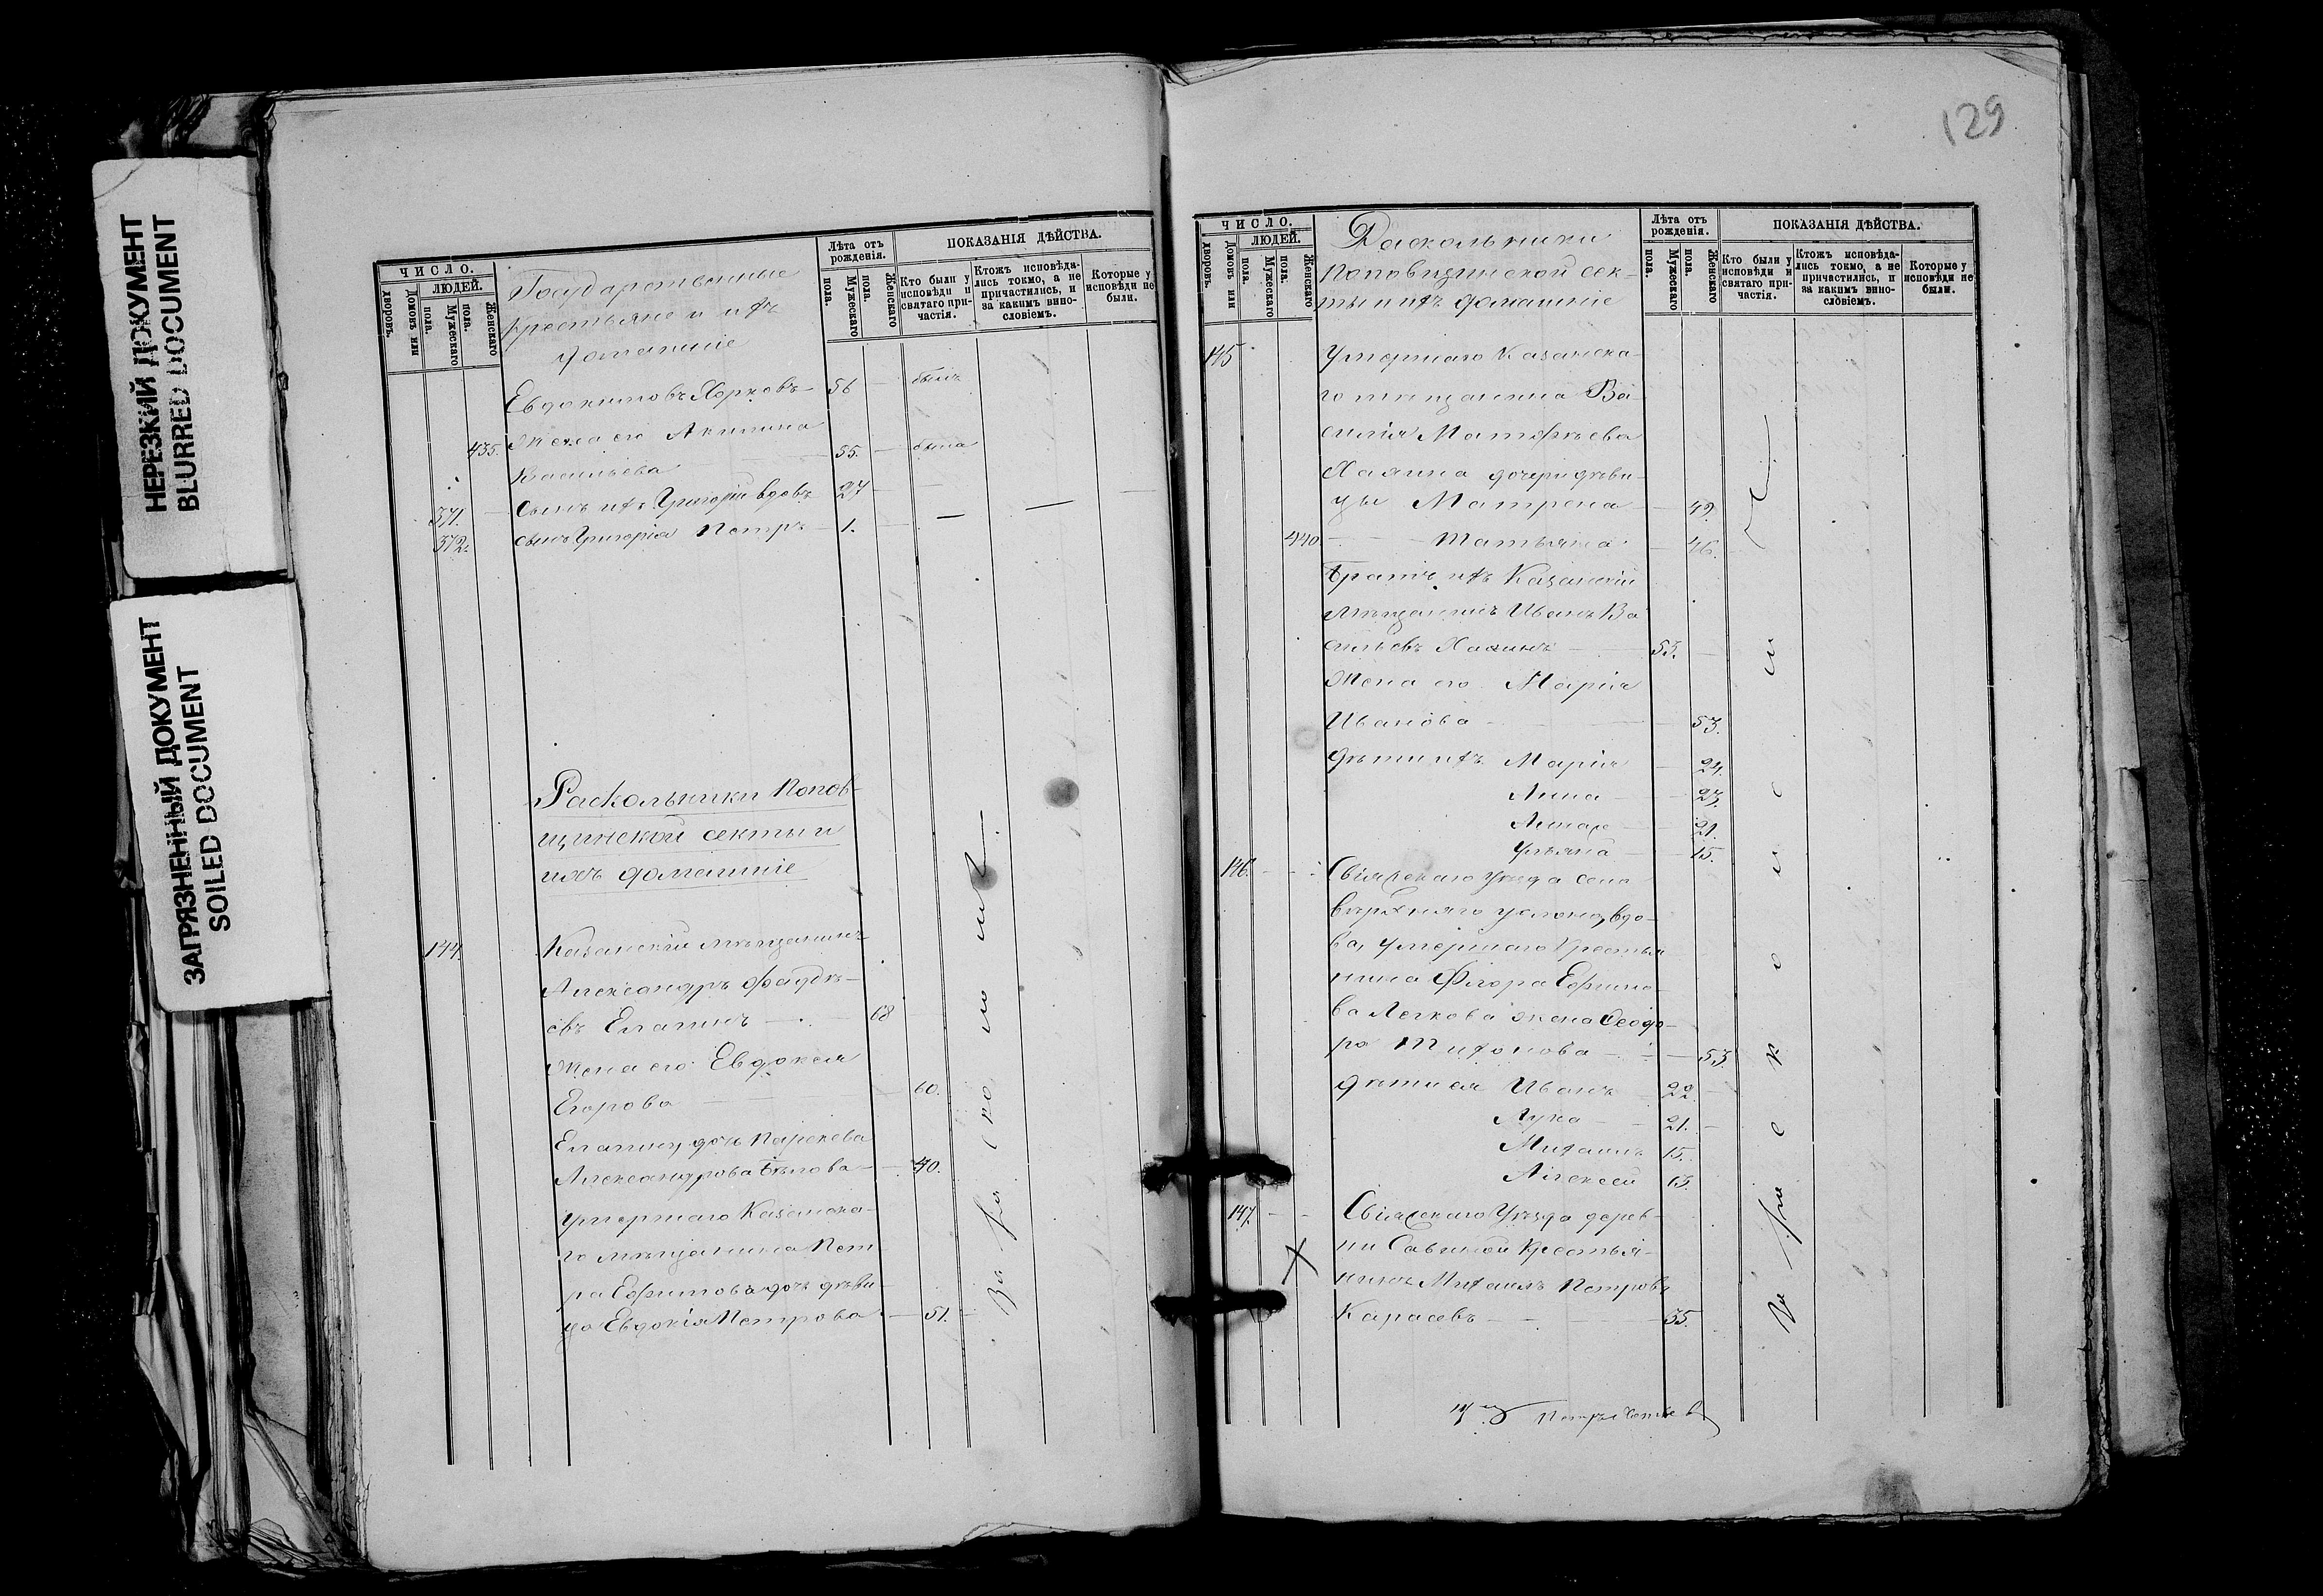 НЕРЕЗКИЙ ДОКУМЕНТ
BLURRED DOCUMENT
ЗАГРЯЗНЕННЫЙ ДОКУМЕНТ
SOILED DOCUMENT
ЧИСЛО.
ЛЮДЕЙ.
Домовъ или дворовъ.
Мужескаго пола.
Женскаго пола.
Государственные
крестьяне и ихъ
домашніе
Лѣта отъ рожденія.
Мужескаго пола.
Женскаго пола.
ПОКАЗАНІЯ ДѢЙСТВА.
Кто были у исповѣди и святаго причастія.
Ктожъ исповѣдались токмо, а не причастились, и за какимъ винословіемъ.
Которые у исповѣди не были.
Евдокимовъ 56 былъ
435. Жена его Акилина
Васильева 55. была
371. Сынъ ихъ Григорій вдовъ 27
372. сынъ Григорія Петръ 1.
Раскольники Поповщинской секты и
ихъ домашніе
144 Казанскій мѣщанинъ
Александръ Фадѣевъ Елагинъ 68
Жена его Евдокея
Егорова 60.
дочь
Александрова Бѣлова 40.
Умершаго Казанскаго мѣщанина Петра Ефимова дочь дѣвица Евдокія Петрова 51.
129
ЧИСЛО.
ЛЮДЕЙ.
Домовъ или дворовъ.
Мужескаго пола.
Женскаго пола.
Раскольники
поповщинской секты и ихъ домашніе
Лѣта отъ рожденія.
Мужескаго пола.
Женскаго пола.
ПОКАЗАНІЯ ДѢЙСТВА.
Кто были у исповѣди и святаго причастія.
Ктожъ исповѣдались токмо, а не причастились, и за какимъ винословіемъ.
Которые у исповѣди не были.
145 Умершаго Казанска-
го мѣщанина Ва-
силія Матфѣева
дочери дѣви-
цы Матрена 49.
440 Татьяна 46.
Братъ ихъ Казанскій
Мѣщанинъ Иванъ Ва
сильевъ 53.
Жена его Марія
Иванова 53.
дѣти ихъ Марія 24.
Анна 23.
21.
Ульяна 15.
146. Свіяжскаго Уѣзда села
верхняго услона, вдо-
ва, умершаго Крестья
нина Ефимо-
ва жена Ѳеодо-
ра Тихонова 53.
дѣти ея Иванъ 22.
Лука 21.
Михаилъ 15.
Алексей 13.
147. Свіяжскаго Уѣзда дерев-
ни Савиной Крестья-
нинъ Михаилъ Петровъ
Карасевъ 35.